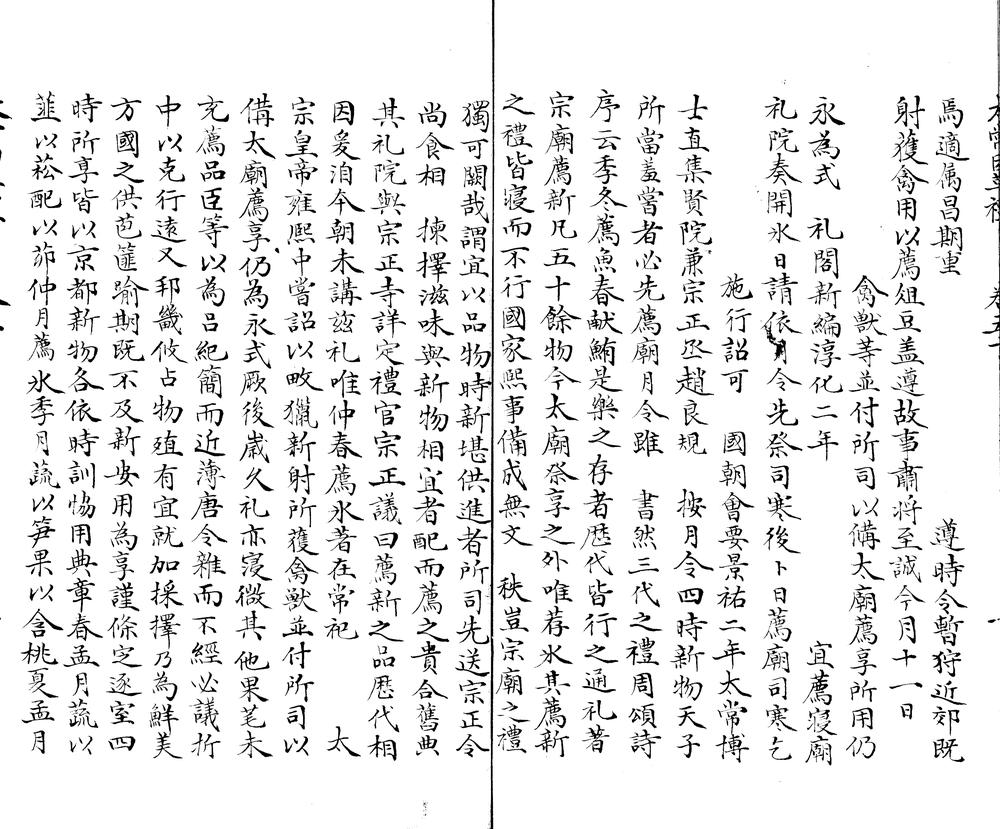 爲適属昌期重　　　　　　遵時令暫狩近郊既
射獲禽用以薦俎豆盖遵故事肅将至誠今月十一日
禽獸等並付所司以備太廟薦享所用仍
永為式　礼閣新編淳化二年　　　　宜薦寝廟
礼院奏開氷日請依月令先祭司寒後卜日薦廟司寒乞
施行詔可　國朝會要景祐二年太常博
士直集賢院兼宗正丞趙良規　按月令四時新物天子
所當羞嘗者必先薦廟月令雖　書然三代之禮周頌詩
序云季冬薦魚春献鮪是樂之存者歴代皆行之通礼著
宗廟薦新凡五十餘物今太廟祭享之外唯荐氷其薦新
之禮皆寝而不行國家熙事備成無文　秩豈宗廟之禮
獨可闕哉謂宜以品物時新堪供進者所司先送宗正令
尚食相　揀擇滋味與新物相宜者配而薦之貴合舊典
其礼院與宗正寺詳定禮官宗正議曰薦新之品歴代相
因爰洎今朝未講玆礼唯仲春薦氷著在常祀　　太
宗皇帝雍熙中嘗詔以畋獵新射所獲禽獸並付所司以
備太廟薦享仍為永式厥後歳久礼亦寝微其他果茗未
充薦品臣等以為吕紀簡而近薄唐令雜而不經必議折
中以克行逺又邦畿攸占物殖有宜就加採擇乃為鮮美
方國之供苞篚踰期既不及新安用為享謹條定逐室四
時所享皆以京都新物各依時訓恊用典章春孟月蔬以
韮以菘配以夘仲月薦氷季月蔬以笋果以含桃夏孟月